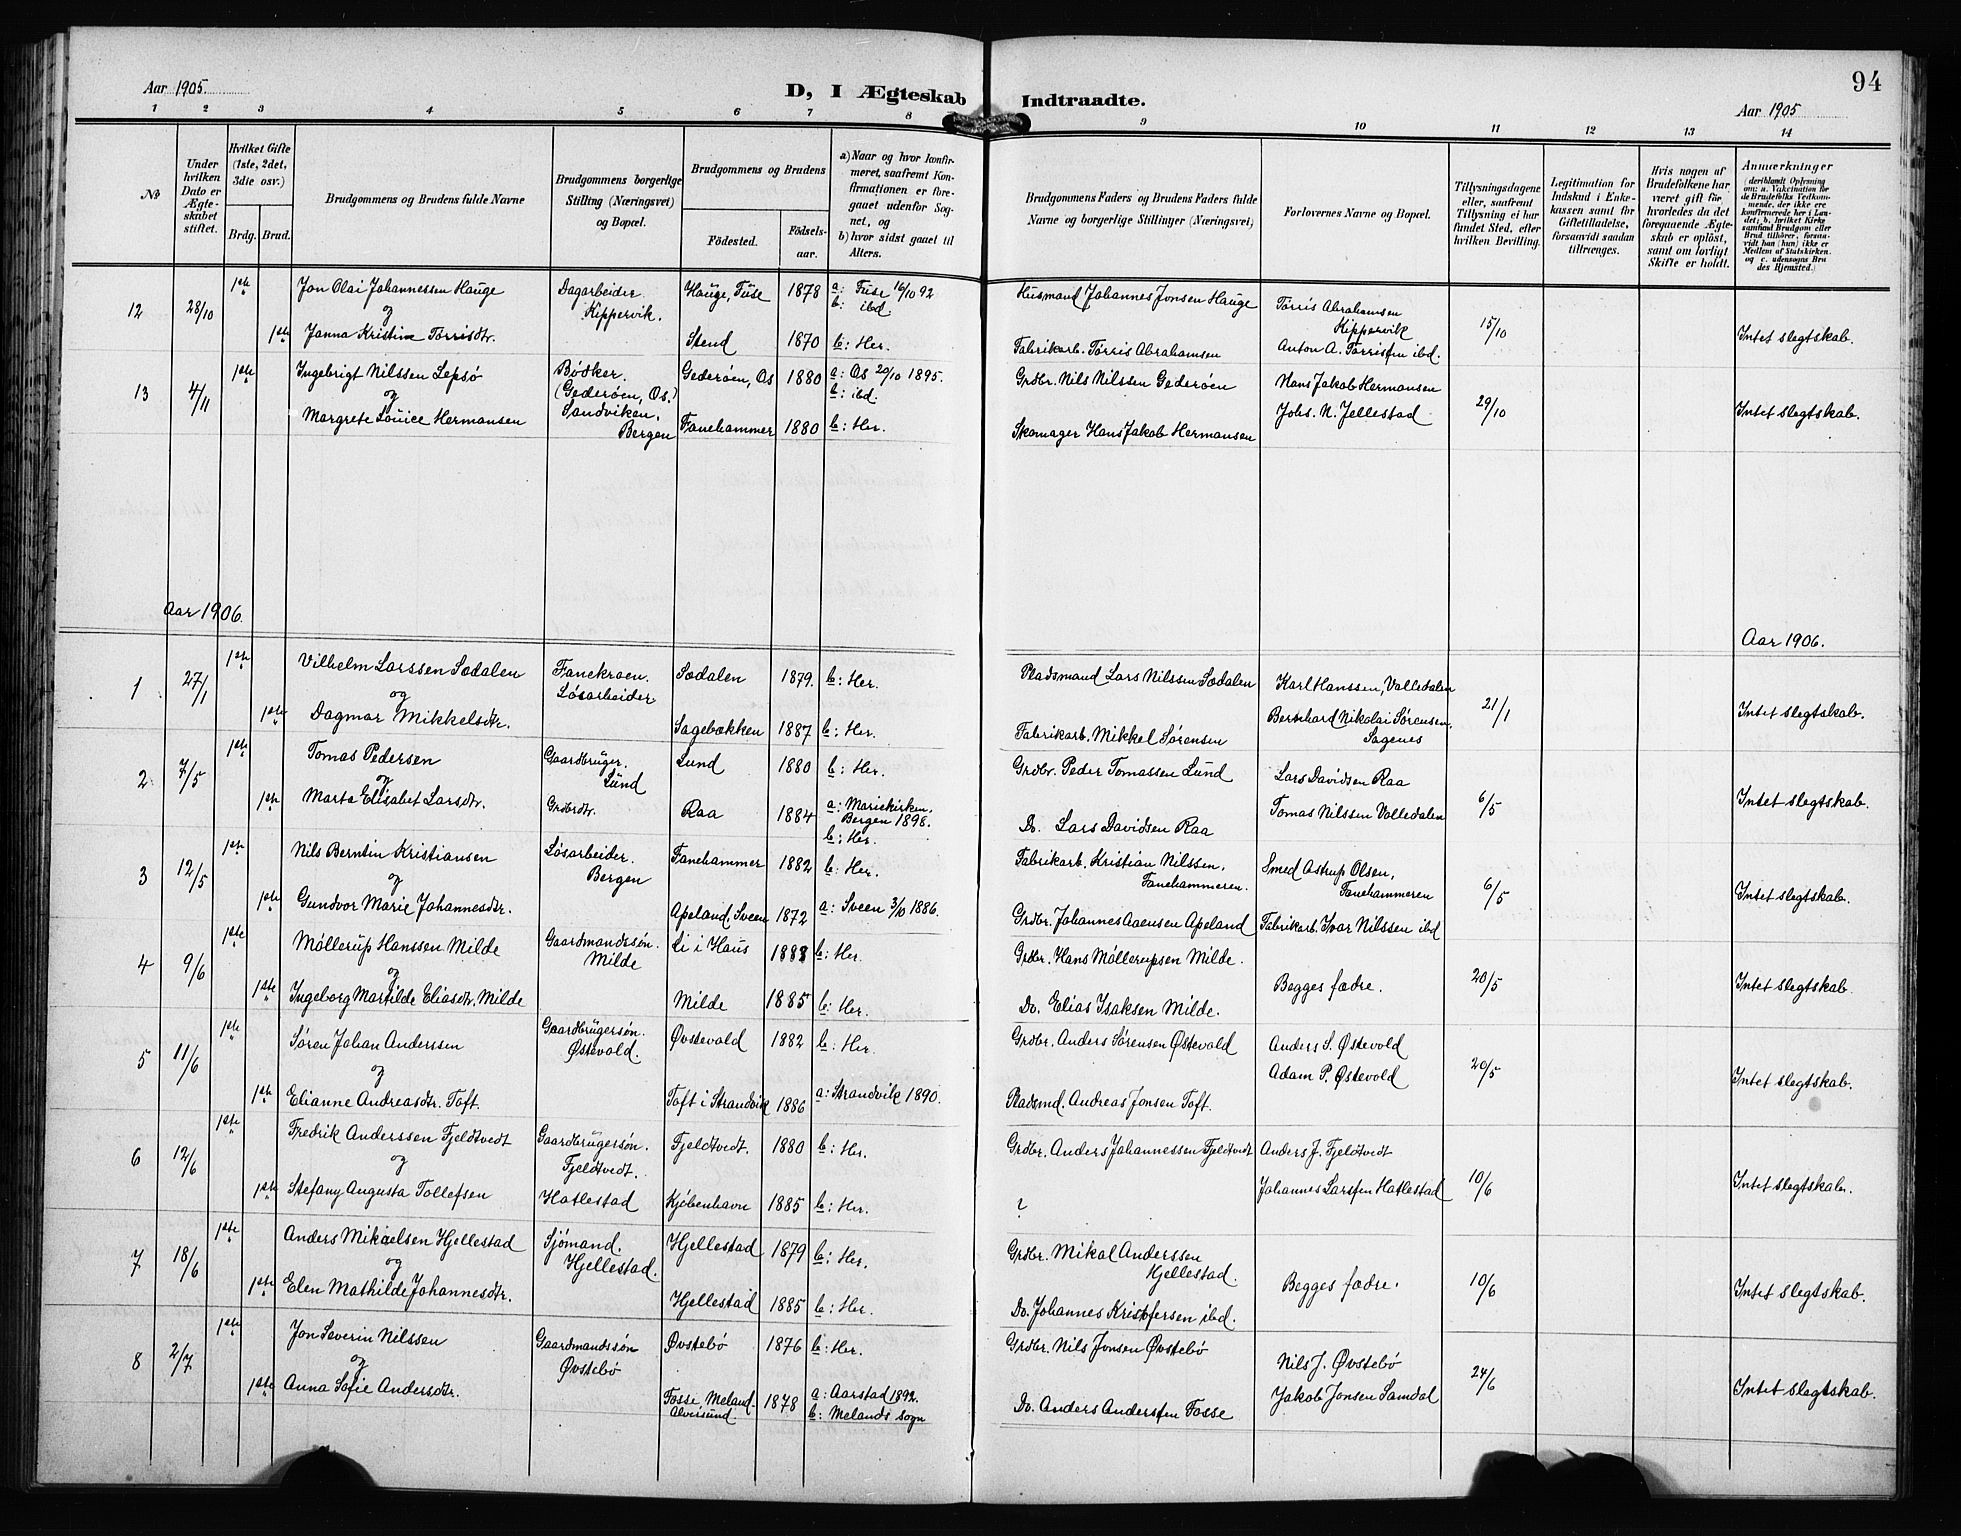 94
Aar 1905
D, I Ægteskab Indtraadte.
Aar 1905
1 2 3 4 5 6 7 8 9 10 11 12 13 14
No
Under hvilken Dato er Ægteskabet stiftet.
Hvilket Gifte (1ste, 2det, 3die osv.)
Brdg. Brud.
Brudgommens og Brudens fulde Navne
Brudgommens borgerlige Stilling (Næringsvei) og Bopæl.
Brudgommens og Brudens
Fødested. Fødselsaar.
a) Naar og hvor konfirmeret, saafremt Konfirmationen er foregaaet udenfor Sognet, og
b) hvor sidst gaaet til Alters.
Brudgommens Faders og Brudens Faders fulde Navne og borgerlige Stillinger (Næringsvei)
Forlovernes Navne og Bopæl.
Tillysningsdagene eller, saafremt Tillysning ei har fundet Sted, efter hvilken Bevilling.
Legitimation for Indskud i Enkekassen samt for Giftetilladelse, forsaavidt saadan tiltrænges.
Hvis nogen af Brudefolkene har været gift før, hvorledes da det foregaaende Ægteskab er opløst, samt om lovligt Skifte er holdt.
Anmærkninger
(deriblandt Oplysning om: a. Vakcination for de Brudefolks Vedkommende, der ikke ere konfirmerede her i Landet; b. hvilket Kirkesamfund Brudgom eller Brud tilhører, forsaavidt han (hun) ikke er Medlem af Statskirken, og c. udensogns Brudes Hjemsted.)
12 28/10 1ste Jon Olai Johannessen Hauge Dagarbeider. Kippervik. Hauge, Fuse 1878 a: Fuse 16/10 92 b: ibd. Husmand Johannes Jonsen Hauge Tørris Abrahamsen Kippervik 15/10 Intet slegtskab.
og
1ste Janna Kristine Tørrisdtr. Stend 1870 b: Her. Fabrikarb. Tørris Abrahamsen Anton A. Tørrissen ibd.
13 4/11 1ste Ingebrigt Nilssen Lepsø Bødker. (Gederøen, Os.) Sandviken. Bergen Gederøen, Os 1880 a: Os 20/10 1895. b: ibd. Grdbr. Nils Nilssen Gederøen Hans Jakob Hermansen 29/10 Intet slegtskab.
og
Margrete Louice Hermansen Fanehammer 1880 b: Her. Skomager Hans Jakob Hermansen Johs. N. Jellestad
Aar 1906.
Aar 1906.
1 27/1 1ste Vilhelm Larssen Sædalen Fanekraen. Løsarbeider Sædalen 1879. b: Her. Pladsmand Lars Nilssen Sædalen Karl Hanssen, Valledalen 21/1 Intet slegtskab.
og
1ste Dagmar Mikkelsdtr. Sagebækken 1887 b: Her. Fabrikarb. Mikkel Sørensen Bernhard Nikolai Sørensen. Sagenes
2 7/5 1ste Tomas Pedersen Gaardbruger. Lund Lund 1880 b: Her. Grdbr. Peder Tomassen Lund Lars Davidsen Raa 6/5 Intet slegtskab.
og
1ste Marta Elisabet Larsdtr. Grdbrdtr. Raa 1884 a: Mariekirken. Bergen 1898. b: Her. Do. Lars Davidsen Raa Tomas Nilssen Valledalen
3 12/5 1ste Nils Berntin Kristiansen Løsarbeider. Bergen Fanehammer 1882 b: Her. Fabrikarb. Kristian Nilssen. Fanehammeren. Smed Astrup Olsen, Fanehammeren 6/5 Intet slegtskab.
og
1ste Gundvor Marie Johannesdtr. Apeland, Sveen 1872 a: Sveen 3/10 1886. Grdbr. Johannes Aaensen Apeland Fabrikarb. Ivar Nilssen ibd
4 9/6 1ste Møllerup Hanssen Milde Gaardmandssøn. Milde Li i Haus 1883 b: Her. Grdbr. Hans Møllerupsen Milde. Begges fædre. 20/5 Intet slegtskab
og
1ste Ingeborg Martilde Eliasdtr. Milde Milde 1885 b: Her. Do. Elias Isaksen Milde.
5 11/6 1ste Søren Johan Anderssen Gaardbrugersøn. Østevold. Øvstevold 1882 b: Her. Grdbr. Anders Sørensen Østevold Anders S. Østevold 20/5 Intet slegtskab.
og
1ste Elianne Andreasdtr. Toft. Toft i Strandvik 1886 a: Strandvik 1890. Pladsmd. Andreas Jonsen Toft. Adam P. Østevold
6 12/6 1ste Fredrik Anderssen Fjeldtvedt Gaardbrugersøn. Fjeldtvedt. Fjeldtvedt. 1880 b: Her. Grdbr. Anders Johannessen Fjeldtvedt Anders J. Fjeldtvedt 10/6 Intet slegtskab.
og
1ste Stefany Augusta Tollefsen Hatlestad Kjøbenhavn 1885 b: Her. ? Johannes Larssen Hatlestad
7 18/6 1ste Anders Mikaelsen Hjellestad Sjømand. Hjellestad. Hjellestad 1879 b: Her. Grdbr. Mikal Anderssen Hjellestad. Begges fædre. 10/6 Intet slegtskab.
og
1ste Elen Mathilde Johannesdtr. Hjellestad 1885 b: Her. Do. Johannes Kristofersen ibd.
8 2/7 1ste Jon Severin Nilssen Gaardmandssøn Øvstebø Øvstebø 1876 b: Her. Grdbr. Nils Jonsen Øvstebø Nils J. Øvstebø 24/6 Intet slegtskab.
og
1ste Anna Sofie Andersdtr. Fosse Meland. Alversund 1878 a: Aarstad 1892. b: Melands sogn Do. Anders Anderssen Fosse Jakob Jonsen Samdal